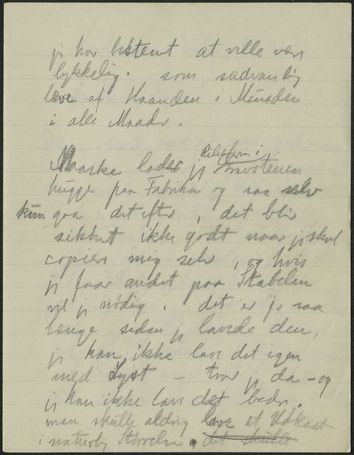 jeg har bestemt at ville være
lykkelig. som sædvanlig
leve af Haanden i Munden
i alle Maader.
Maaske lader jeg Relieffern i
hugge paa Fabriken og saa selv
kun gaa det efter, det blir
sikkert ikke godt naar jeg skal
copiere mig selv, og hvis
jeg faar andet paa Stabelen
vil jeg nødig. det er jo saa
længe siden jeg lavede den,
jeg kan ikke lave det igen
med Lyst – tror jeg da – og
jeg kan ikke lave det bedre.
man skulle aldrig lave et Udkast
i naturlig Størrelse. det skulle